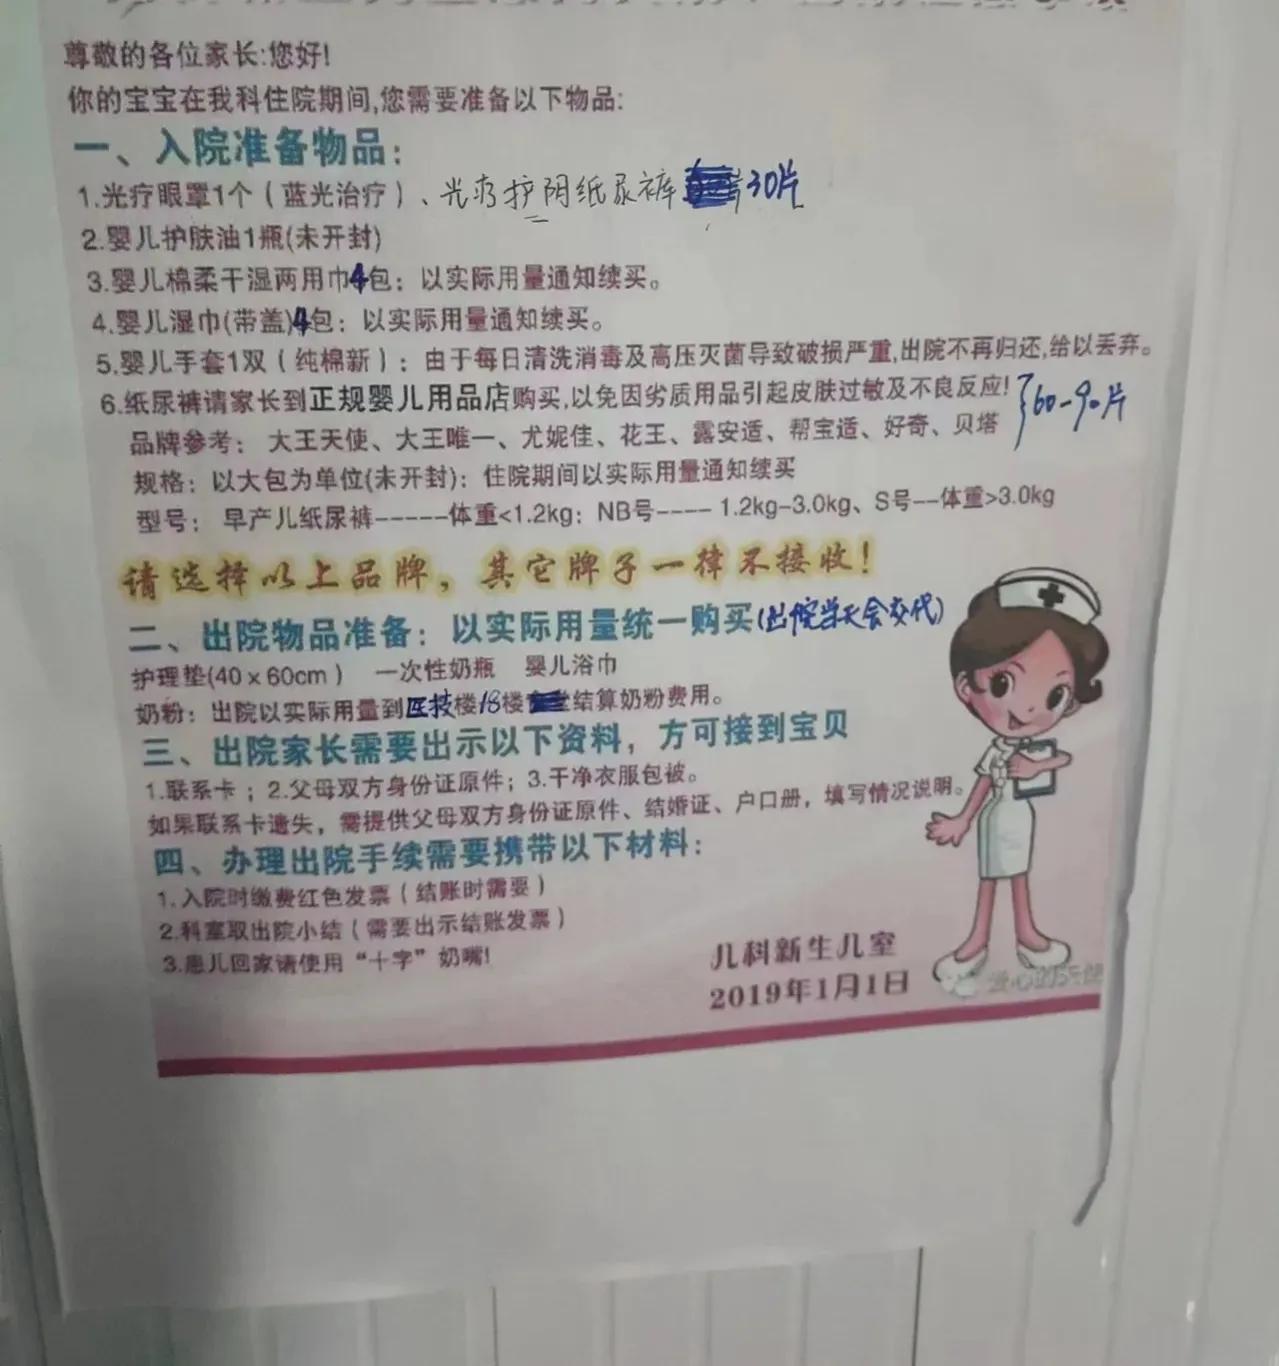 尊敬的各位家长:您好!
你的宝宝在我科住院期间,您需要准备以下物品:
一、入院准备物品:
1.光疗眼罩1个(蓝光治疗)、光疗护阴纸尿裤 30片
2.婴儿护肤油1瓶(未开封)
3.婴儿棉柔干湿两用巾4包:以实际用量通知续买。
4.婴儿湿巾(带盖)4包:以实际用量通知续买。
5.婴儿手套1双(纯棉新):由于每日清洗消毒及高压灭菌导致破损严重,出院不再归还,给以丢弃。
6.纸尿裤请家长到正规婴儿用品店购买,以免因劣质用品引起皮肤过敏及不良反应! 60-90片
品牌参考: 大王天使、大王唯一、尤妮佳、花王、露安适、帮宝适、好奇、贝塔
规格:以大包为单位(未开封):住院期间以实际用量通知续买
型号: 早产儿纸尿裤-----体重<1.2kg;NB号---- 1.2kg-3.0kg、S号--体重>3.0kg
请选择以上品牌,其它牌子一律不接收!
二、出院物品准备:以实际用量统一购买(出院当天会交代)
护理垫(40×60cm) 一次性奶瓶 婴儿浴巾
奶粉:出院以实际用量到医技楼18楼结算奶粉费用。
三、出院家长需要出示以下资料,方可接到宝贝
1.联系卡;2.父母双方身份证原件;3.干净衣服包被。
如果联系卡遗失,需提供父母双方身份证原件、结婚证、户口册,填写情况说明。
四、办理出院手续需要携带以下材料:
1.入院时缴费红色发票(结账时需要)
2.科室取出院小结(需要出示结账发票)
3.患儿回家请使用“十字”奶嘴!
儿科新生儿室
2019年1月1日